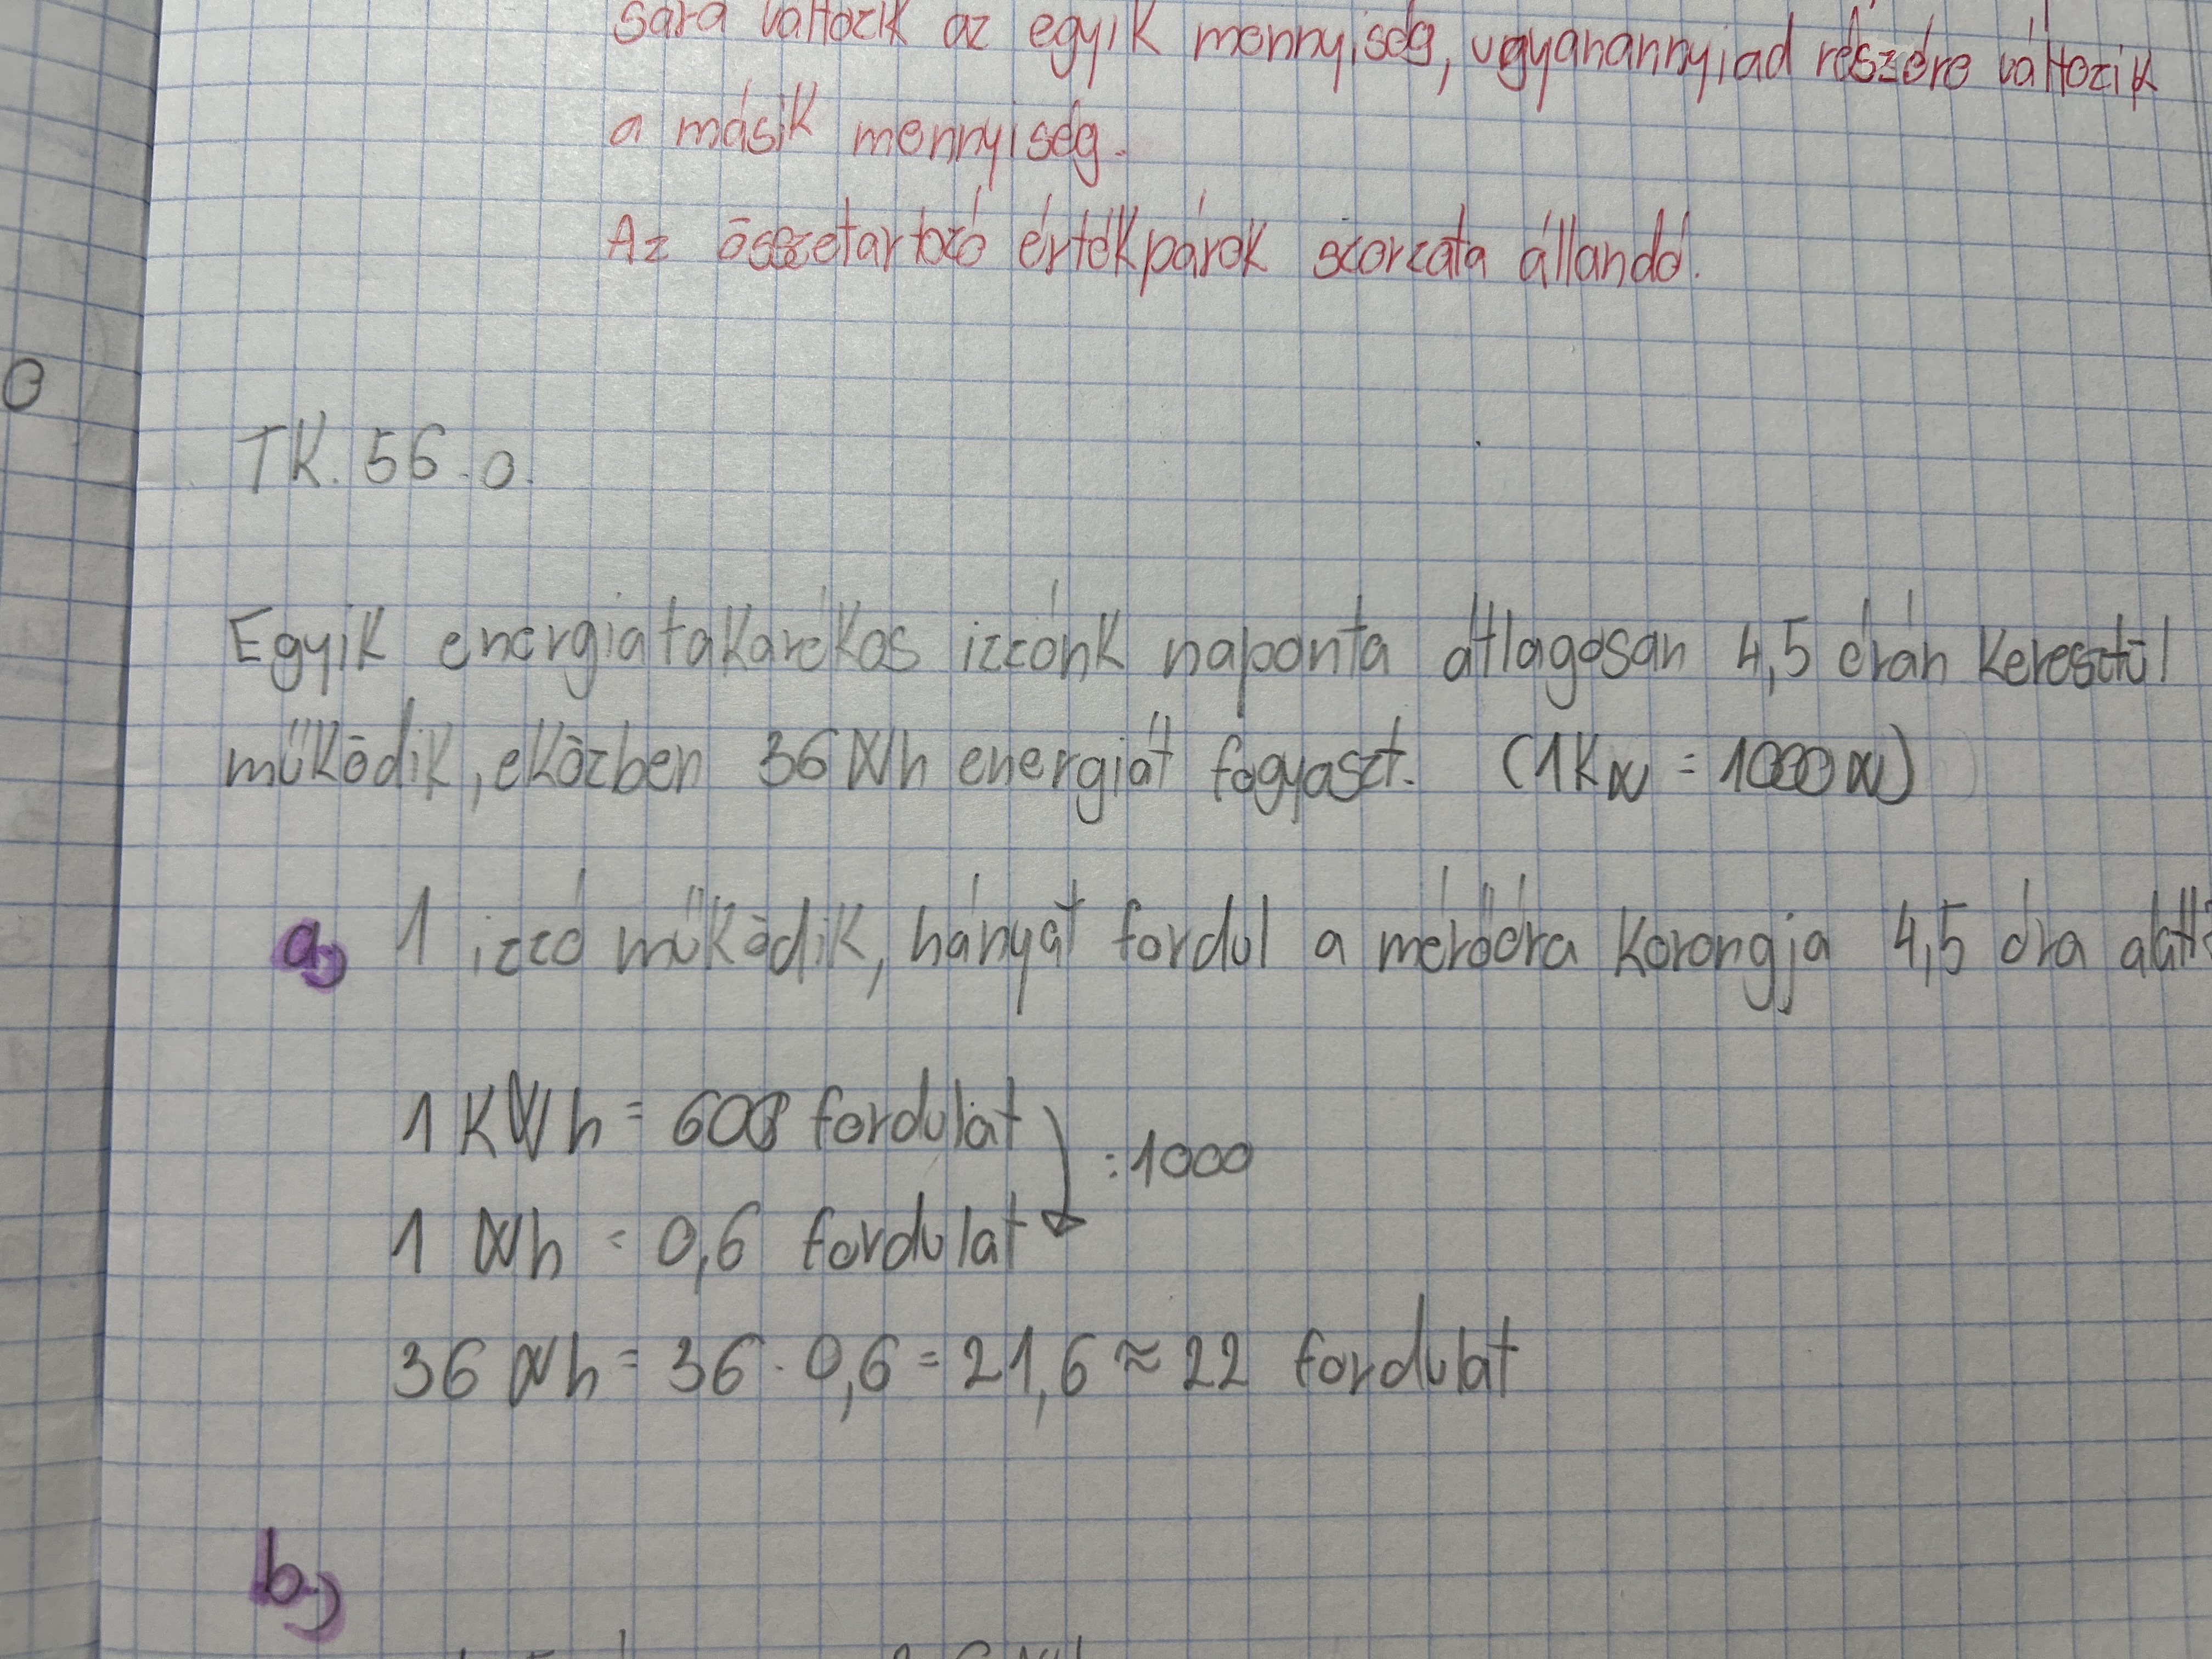 sára változik az egyik mennyiség, ugyanannyiad részére változik
a másik mennyiség.
Az összetartozó értékpárok szorzata állandó.
TK. 56. o.
Egyik energiatakarékos izzónk naponta átlagosan 4,5 órán keresztül
működik, eközben 36 Wh energiát fogyaszt. (1 kW = 1000 W)
a, 1 izzó működik, hányat fordul a mérőóra korongja 4,5 óra alatt?
1 kWh = 600 fordulat
:1000
1 Wh = 0,6 fordulat
36 Wh = 36 · 0,6 = 21,6 ≈ 22 fordulat
b,